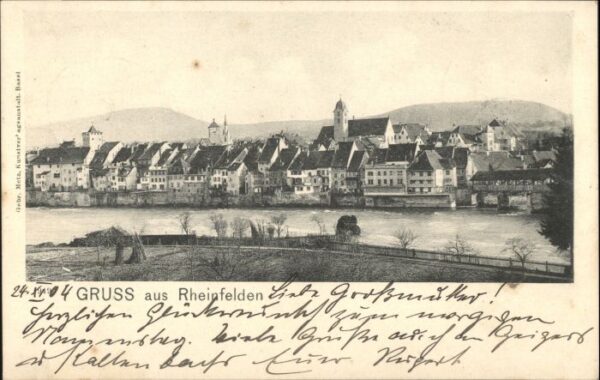 Gebr. Metz, Kunstverlagsanstalt, Basel
24. IV 04 GRUSS aus Rheinfelden Liebe Großmutter!
herzlichen Glückwunsch zum morgigen
Namenstag. Liebe Grüße auch an Geigers
u Kaltenbachs Euer